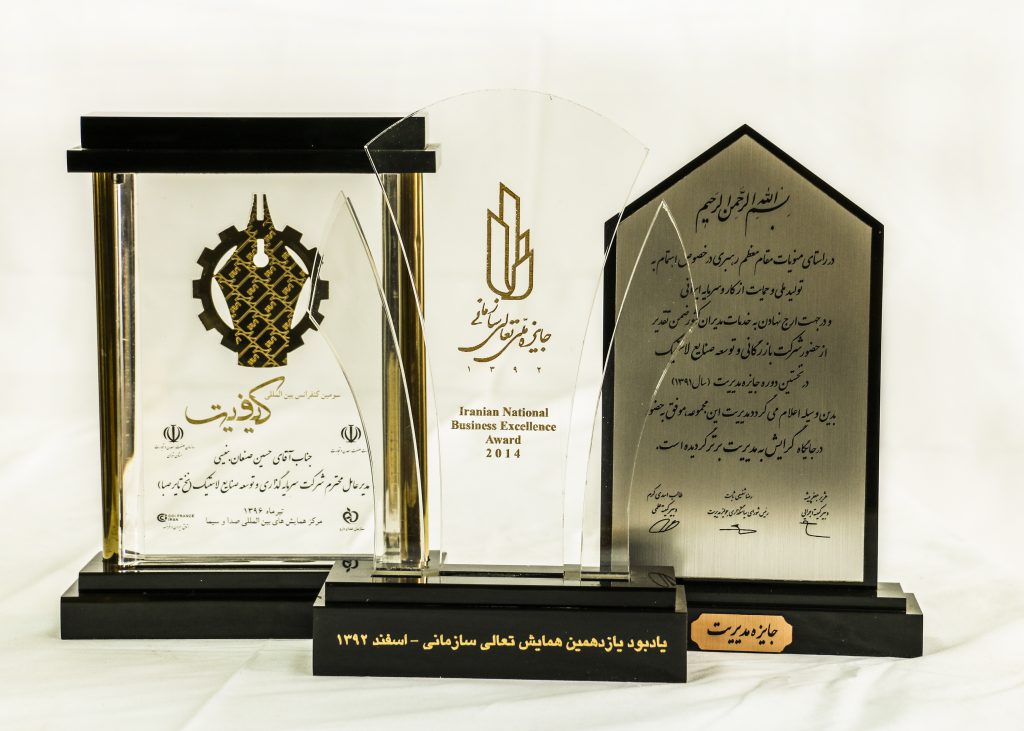 سومین کنفرانس بین المللی
کیفیت
جناب آقای حسین صنعان نفیسی
مدیر عامل محترم شرکت سرمایه گذاری و توسعه صنایع لاستیک (نخ تایر صبا)
تیر ماه ۱۳۹۶
مرکز همایش های بین المللی صدا و سیما
جایزه ملی تعالی سازمانی
۱۳۹۲
Iranian National
Business Excellence
Award
2014
یادبود یازدهمین همایش تعالی سازمانی - اسفند ۱۳۹۲
بسم الله الرحمن الرحیم
در راستای منویات مقام معظم رهبری در خصوص اهتمام به
تولید ملی و حمایت از کار و سرمایه ایرانی
و در جهت ارج نهادن به خدمات مدیران کشور ضمن تقدیر
از حضور شرکت بازرگانی و توسعه صنایع لاستیک
در نخستین دوره جایزه مدیریت (سال ۱۳۹۱)
بدین وسیله اعلام می گردد مدیریت این مجموعه، موفق به حضور
در جایگاه گرایش به مدیریت برتر گردیده است.
جایزه مدیریت